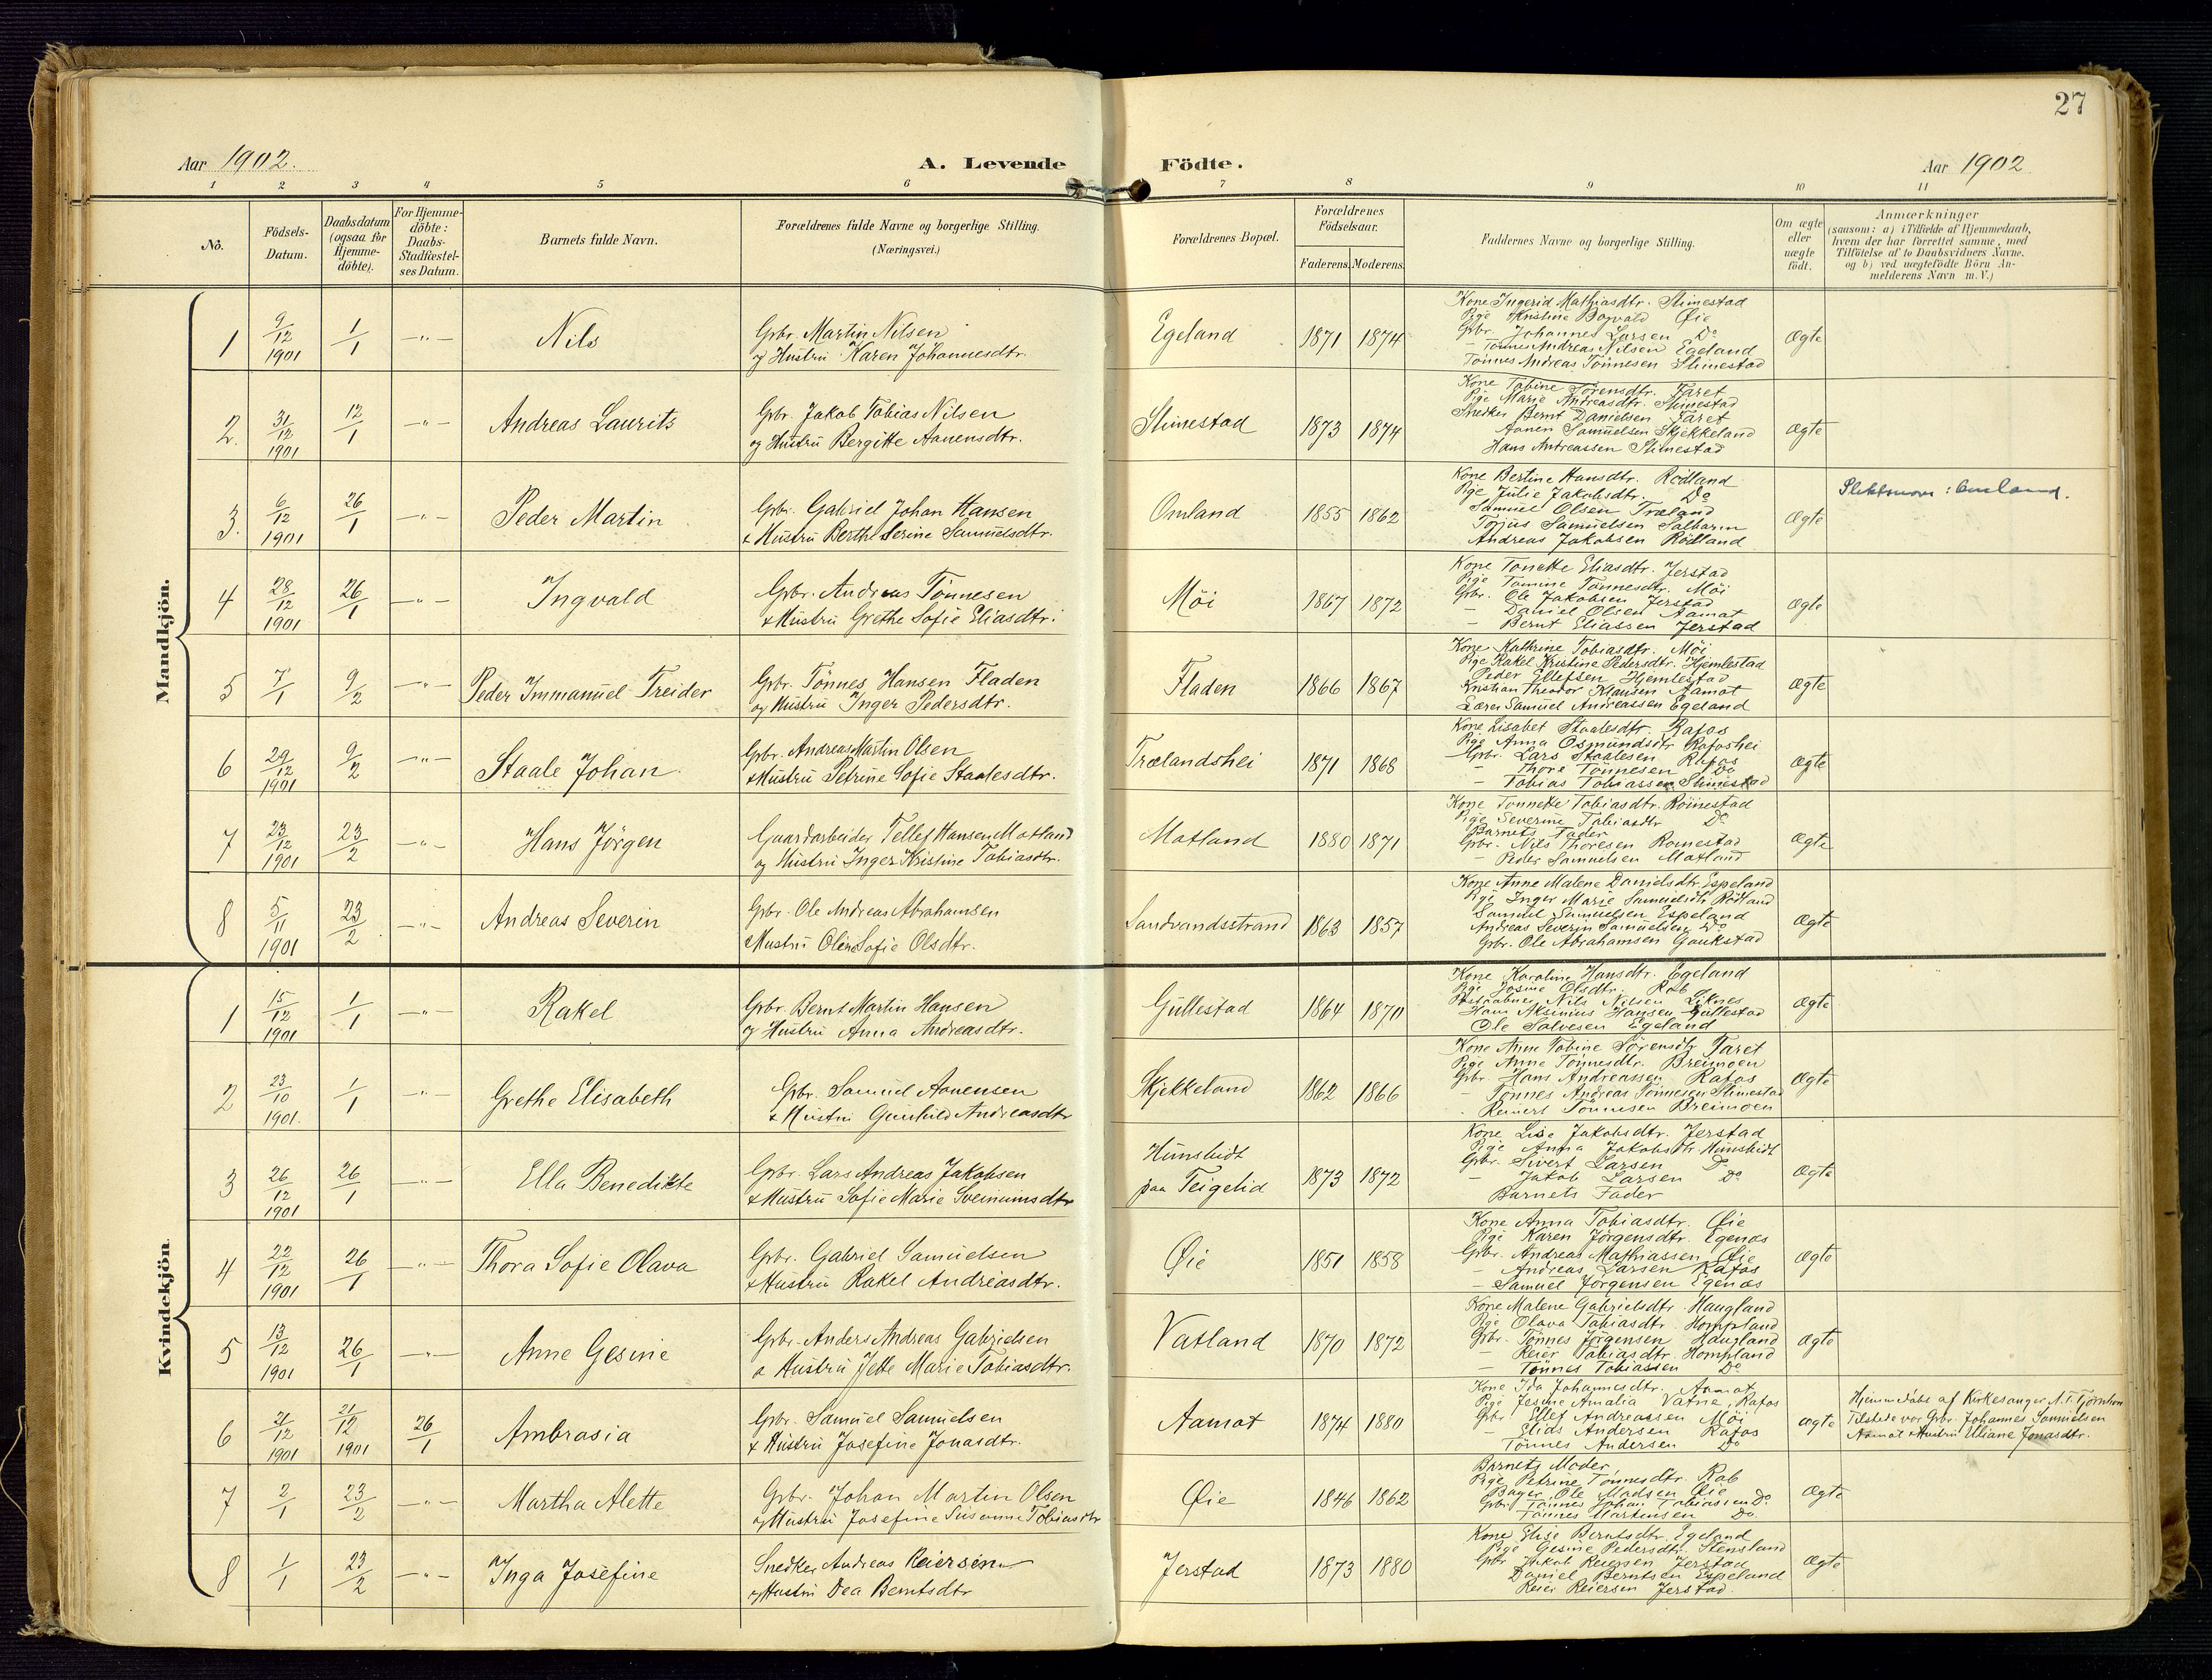 27
Aar 1902.
A. Levende Födte.
Aar 1902
1 2 3 4 5 6 7 8 9 10 11
No.
Födsels-Datum.
Daabsdatum (ogsaa for Hjemme-döbte).
For Hjemme-döbte: Daabs-Stadfæstel-ses Datum.
Barnets fulde Navn.
Forældrenes fulde Navne og borgerlige Stilling.
(Næringsvei.)
Forældrenes Bopæl.
Forældrenes Födselsaar.
Faderens. Moderens.
Faddernes Navne og borgerlige Stilling.
Om ægte eller uægte födt.
Anmærkninger
(saasom: a) i Tilfælde af Hjemmedaab,
hvem der har forrettet samme, med
Tilföielse af to Daabsvidners Navne,
og b) ved uægtefödte Börn An-
melderens Navn m. V.)
Mandkjön.
1 9/12 1901 1/1 -"- Nils
Gbr. Martin Nilsen
og Hustru Karen Johannesdtr.
Egeland 1871 1874
Kone Ingerid Mathiasdtr. Slimestad
Pige Kristine Bogvald Øie
Gbr. Johannes Larsen Do
- Tønnes Andreas Nilsen Egeland
Tønnes Andreas Tønnesen Slimestad
Ægte
2. 31/12 1901 12/1 -"- Andreas Laurits
Gbr. Jakob Tobias Nilsen
og Hustru Bergitte Aanensdtr.
Slimestad 1873 1874
Kone Tobine Sørensdtr. Faret
Pige Marie Andreasdtr. Slimestad
Snedker Bernt Danielsen Faret
Aanen Samuelsen Skjekkeland
Hans Andreassen Slimestad
Ægte
3. 6/12 1901 26/1 -"- Peder Martin
Gbr. Gabriel Johan Hansen
& Hustru Berthe Serine Samuelsdtr.
Omland 1855 1862
Kone Bertine Hansdtr. Rødland
Pige Julie Jakobsdtr. Do
Samuel Olsen Træland
Tojus Samuelsen
Andreas Jakobsen Rødland
Ægte
Slektsnavn: Omland.
4 28/12 1901 26/1 -"- Ingvald
Gbr. Andreas Tønnesen
& Hustru Grethe Sofie Eliasdtr.
Möi 1867 1872
Kone Tonette Eliasdtr. Jerstad
Pige Tomine Tønnesdtr. Möi
Gbr. Ole Jakobsen Jerstad
- Daniel Olsen Aamot
- Bernt Eliassen Jerstad
Ægte
5 7/1 9/2 -"- Peder Immanuel Treider
Gbr. Tönnes Hansen Fladen
og Hustru Inger Pedersdtr.
Fladen 1866 1867
Kone Kathrine Tobiasdtr. Möi
Pige Rakel Kristine Pedersdtr. Hjemlestad
Peder Ellefsen Hjemlestad
Kristian Theodor Klausen Aamot
Lærer Samuel Andreassen Egeland
Ægte
6 29/12 1901 9/2 -"- Staale Johan
Gbr. Andreas Martin Olsen
& Hustru Petrine Sofie Staalesdtr.
Trælandshei 1871 1868
Kone Lisabet Staalesdtr. Rafos
Pige Anna Osmundsdtr Rafoshei
Gbr. Lars Staalesen Rafos
- Thore Tønnesen Do
- Tobias Tobiassen Slimestad
Ægte
7 23/12 1901 23/2 -"- Hans Jörgen
Gaardarbeider Tellef Hansen Matland
og Hustru Inger Kristine Tobiasdtr.
Matland 1880 1871
Kone Tonnette Tobiasdtr. Röinestad
Pige Severine Tobiasdtr Do
Barnets Fader
Gbr. Nils Thoresen Röinestad
- Peder Samuelsen Matland
Ægte
8 5/11 1901 23/2 -"- Andreas Severin
Gbr. Ole Andreas Abrahamsen
& Hustru Oline Sofie Olsdtr.
Sandvandsstrand 1863 1857
Kone Anne Malene Danielsdtr. Espeland
Pige Inger Marie Samuelsdtr Rödland
Samuel Samuelsen Espeland
Andreas Severin Samuelsen Do
Gbr. Ole Abrahamsen Gaukstad
Ægte
Kvindekjön.
1 15/12 1901 1/1 -"- Rakel
Gbr. Bernt Martin Hansen
og Hustru Anna Andreasdtr.
Gullestad 1864 1870
Kone Karoline Hansdtr. Egeland
Pige Josine Olsdtr. Rob
Postaabner Nils Nilsen Liknes
Hans Aksinius Hansen Gullestad
Ole Salvesen Egeland
Ægte
2 23/10 1901. 1/1 -"- Grethe Elisabeth
Gbr. Samuel Aanensen
& Hustru Gunhild Andreasdtr
Skjekkeland 1862 1866
Kone Anne Tobine Sörensdtr Faret
Pige Anne Tönnesdtr. Breimoen
Gbr. Hans Andreassen Rafos
- Tönnes Andreas Tønnesen Slimestad
Reinert Tönnesen Breimoen
Ægte
3 26/12 1901 26/1 -"- Ella Benedikte
Gbr. Lars Andreas Jakobsen
& Hustru Sofie Marie Sveinumsdtr
Hunsbidt
paa Teigelid 1873 1872
Kone Lise Jakobsdtr. Jerstad
Pige Anna Jakobsdtr. Hunsbidt
Gbr. Sivert Larsen Do
- Jakob Larsen Do
Barnets Fader
Ægte
4 22/12 1901 26/1 -"- Thora Sofie Olava
Gbr. Gabriel Samuelsen
& Hustru Rakel Andreasdtr.
Øie 1851 1858
Kone Anna Tobiasdtr. Øie
Pige Karen Jørgensdtr. Egenæs
Gbr. Andreas Mathiassen Øie
- Andreas Larsen Rafos
- Samuel Jørgensen Egenæs
Ægte
5 13/12 1901 26/1 -"- Anne Gesine
Gbr. Anders Andreas Gabrielsen
& Hustru Jette Marie Tobiasdtr.
Vatland 1870 1872
Kone Malene Gabrielsdtr. Haugland
Pige Olava Tobiasdtr. Hompland
Gbr. Tønnes Jørgensen Haugland
- Reier Tobiasdtr. Hompland
- Tønnes Tobiassen Do
Ægte
6 21/12 1901 21/12 1901 26/1 Ambrosia
Gbr. Samuel Samuelsen
& Hustru Josefine Jonasdtr.
Aamot 1874 1880
Kone Ida Johannesdtr. Aamot
Pige Jesine Amalia Vatne, Rafos
Gbr. Ellef Andreassen Möi
- Elias Andersen Rafos
Tönnes Andersen Do
ægte
Hjemmedöbt af Kirkesanger
Tilstede var Gbr. Johannes Samuelsen
Aamot & Hustru Elliane Jonasdtr.
7 2/1 23/2 -"- Martha Alette
Gbr. Johan Martin Olsen
og Hustru Josefine Susanne Tobiasdtr
Øie 1846 1862
Barnets Moder
Pige Petrine Tönnesdtr. Rob
Bager Ole Madsen Øie
Gbr. Tönnes Johan Tobiassen Do.
Tønnes Martinsen Do.
Ægte
8 1/1 23/2 -"- Inga Josefine
Snedker Andreas Reiersen
og Hustru Dea Berntsdtr
Jerstad 1873 1880
Kone Elise Berntsdtr. Egeland
Pige Gesine Pedersdtr. Stensland
Gbr. Jakob Reiersen Jerstad
Daniel Berntsen Espeland
Reier Reiersen Jerstad.
Ægte